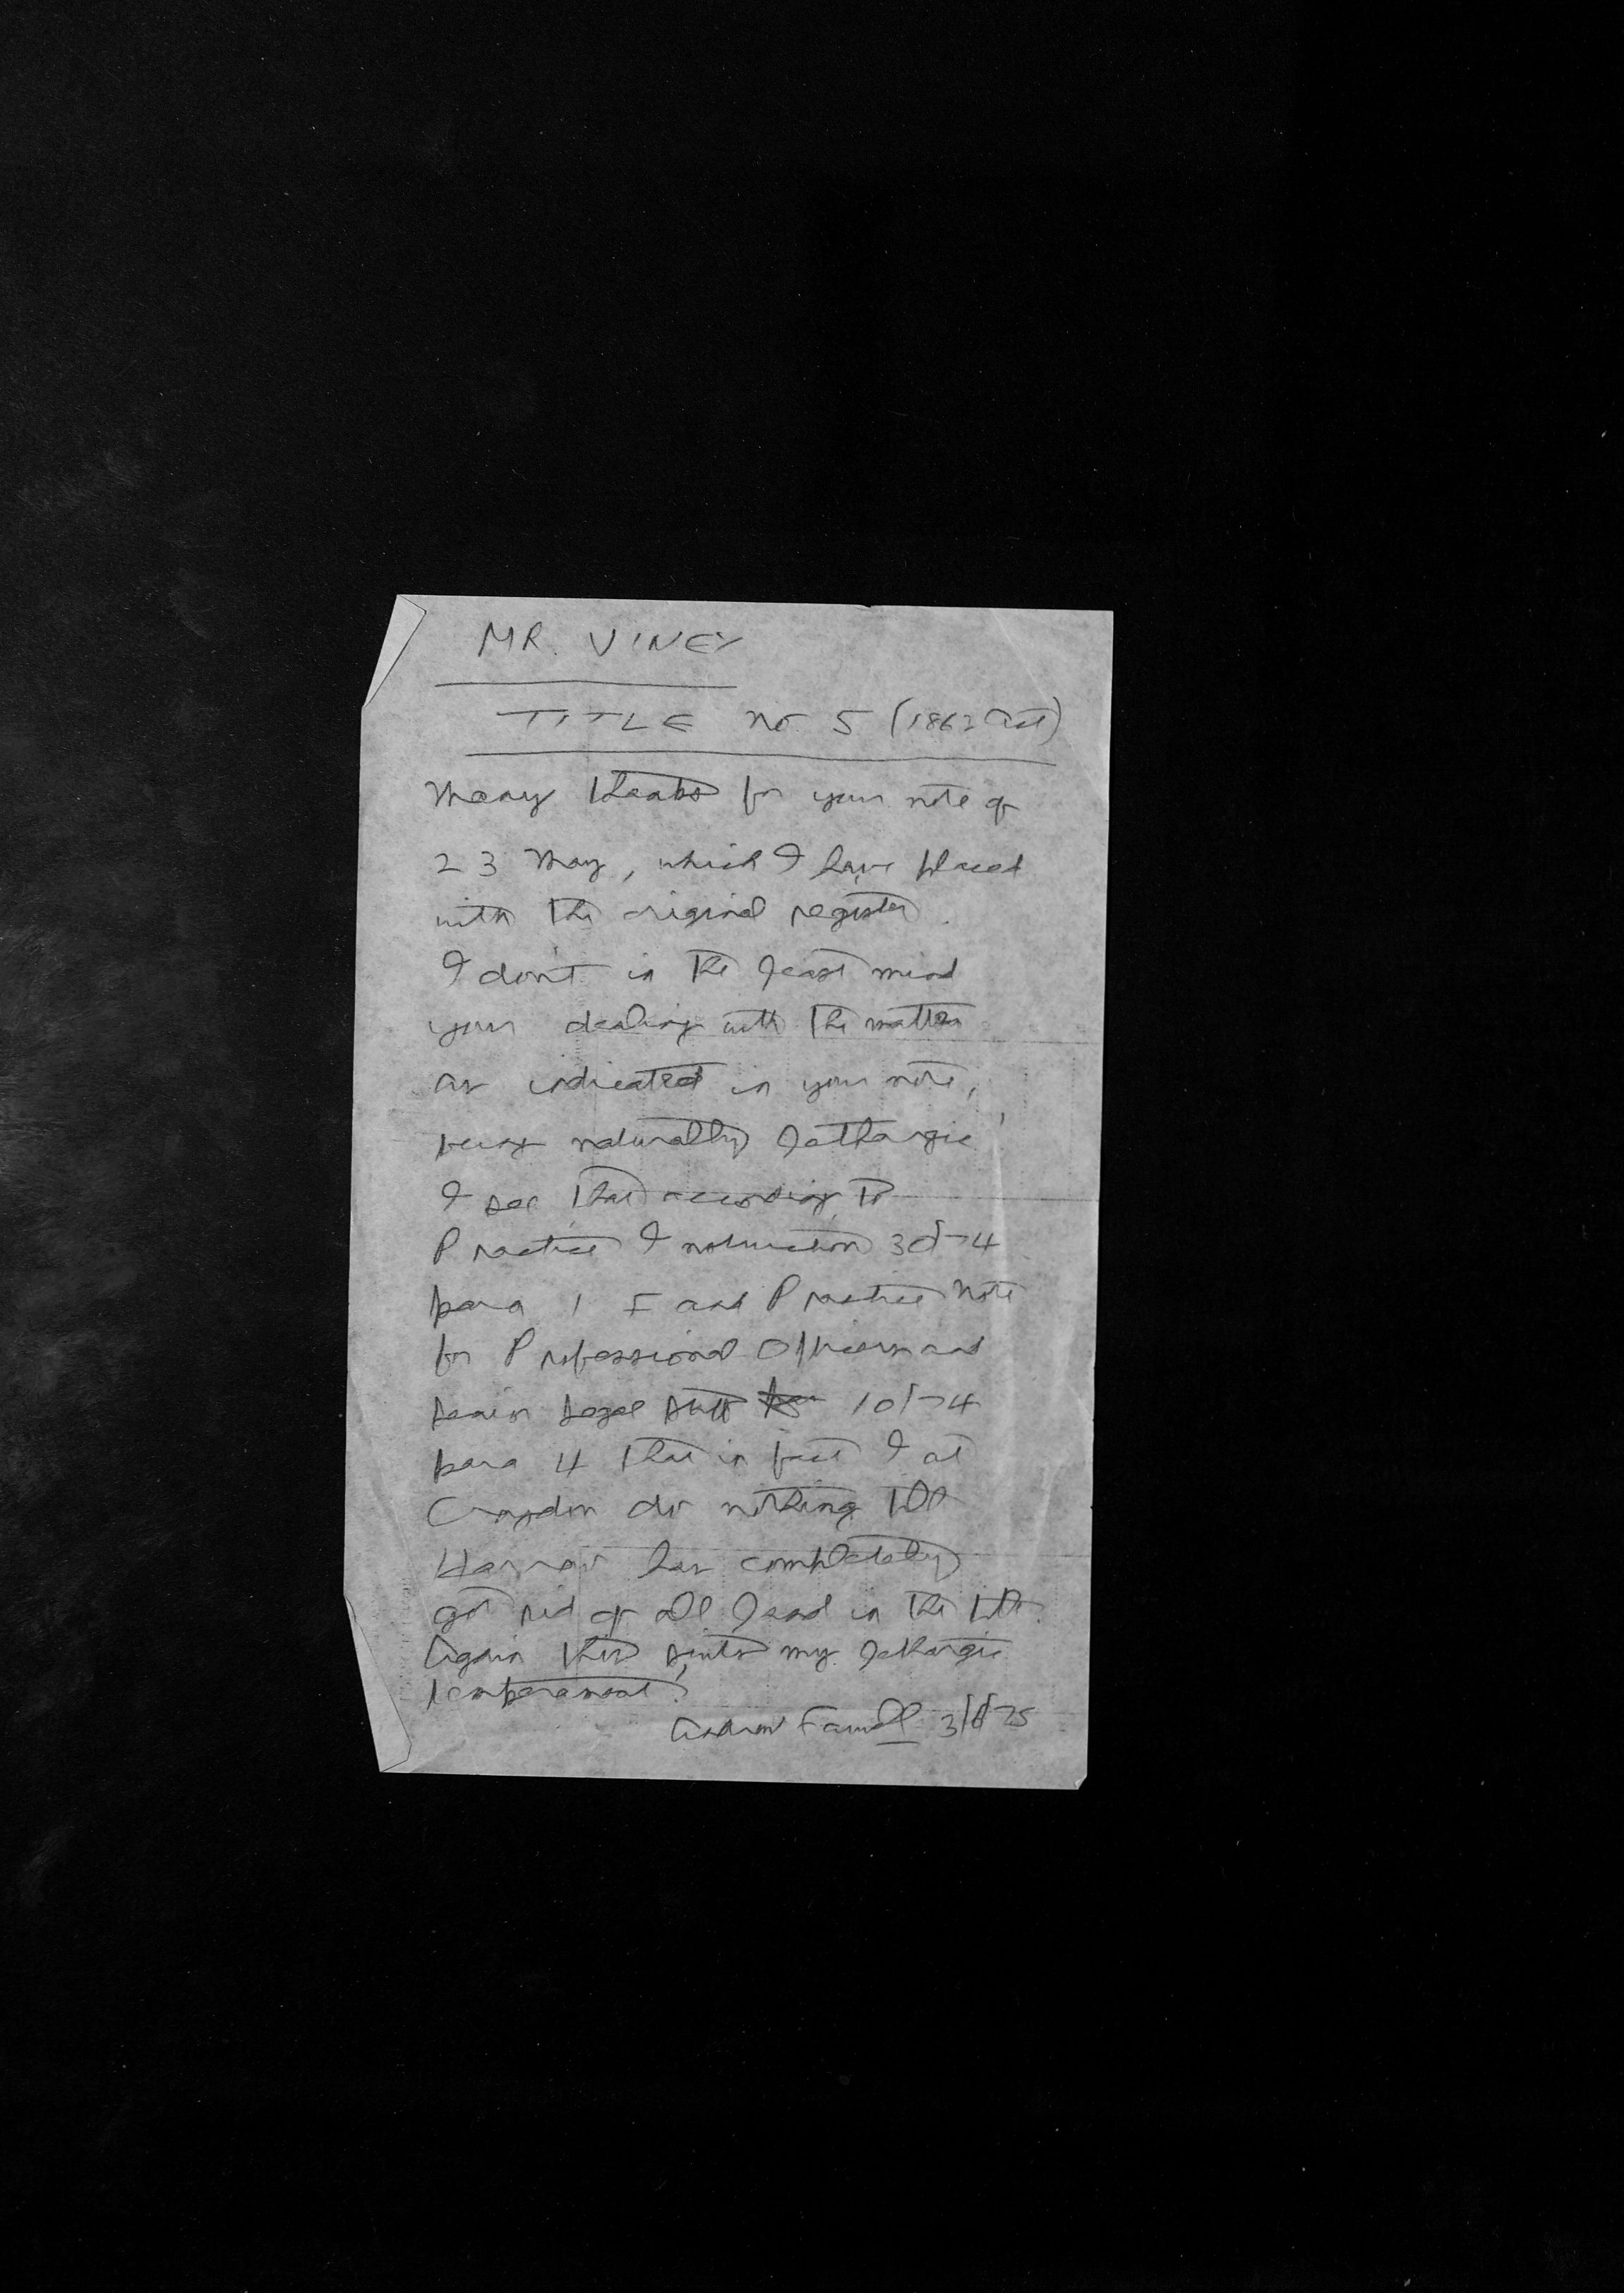 MR. VINEY
TITLE No. 5 (1862 Act)
Many thanks for your note of
23 May, which I have placed
with the original register.
I don't in the least mind
your dealing with the matter
as indicated in your note,
being naturally lethargic!
I see that according to
Practice Instruction 30/74
para 1 F and Practice Note
for Professional Officers and
Senior Legal Staff 10/74
para 4 that in fact I at
Croydon do nothing till
Harrow has completely
got rid of all land in the title.
Again this suits my lethargic
temperament!
Andrew Farnell 3/6/75